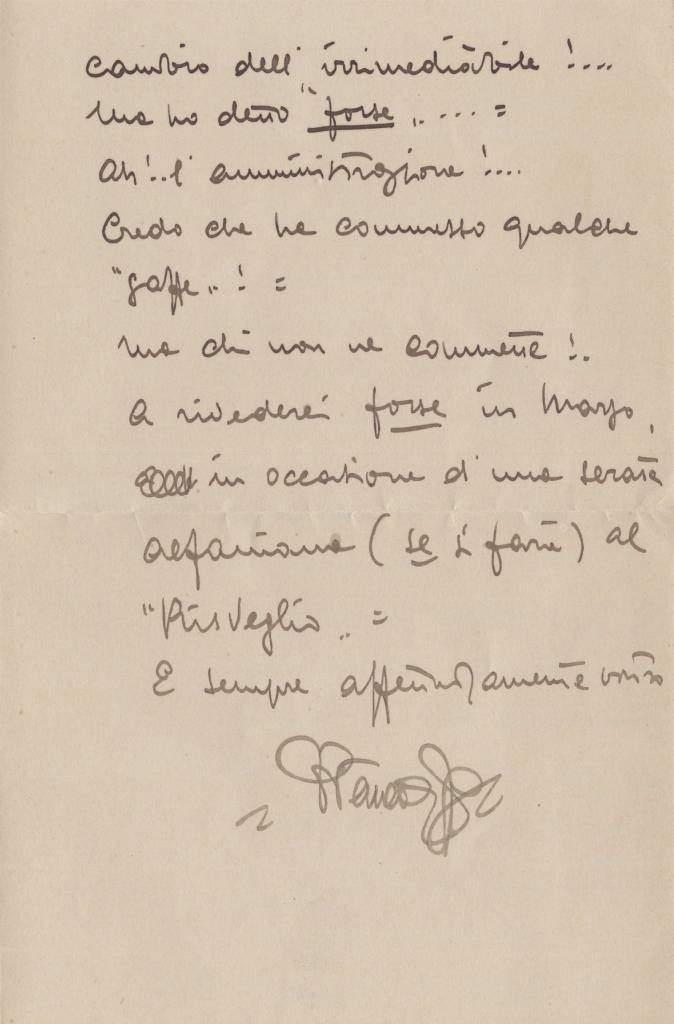 cambio dell' irrimediabile !....
Ma ho detto "forse „ .... =
Ah!..l' amministrazione !....
Credo che ho commesso qualche
"gaffe„ ! =
ma chi non ne commette !.
A rivederci forse in Marzo,
in occasione d' una serata
(se si farà) al
"Risveglio„ =
E sempre affettuosamente vostro